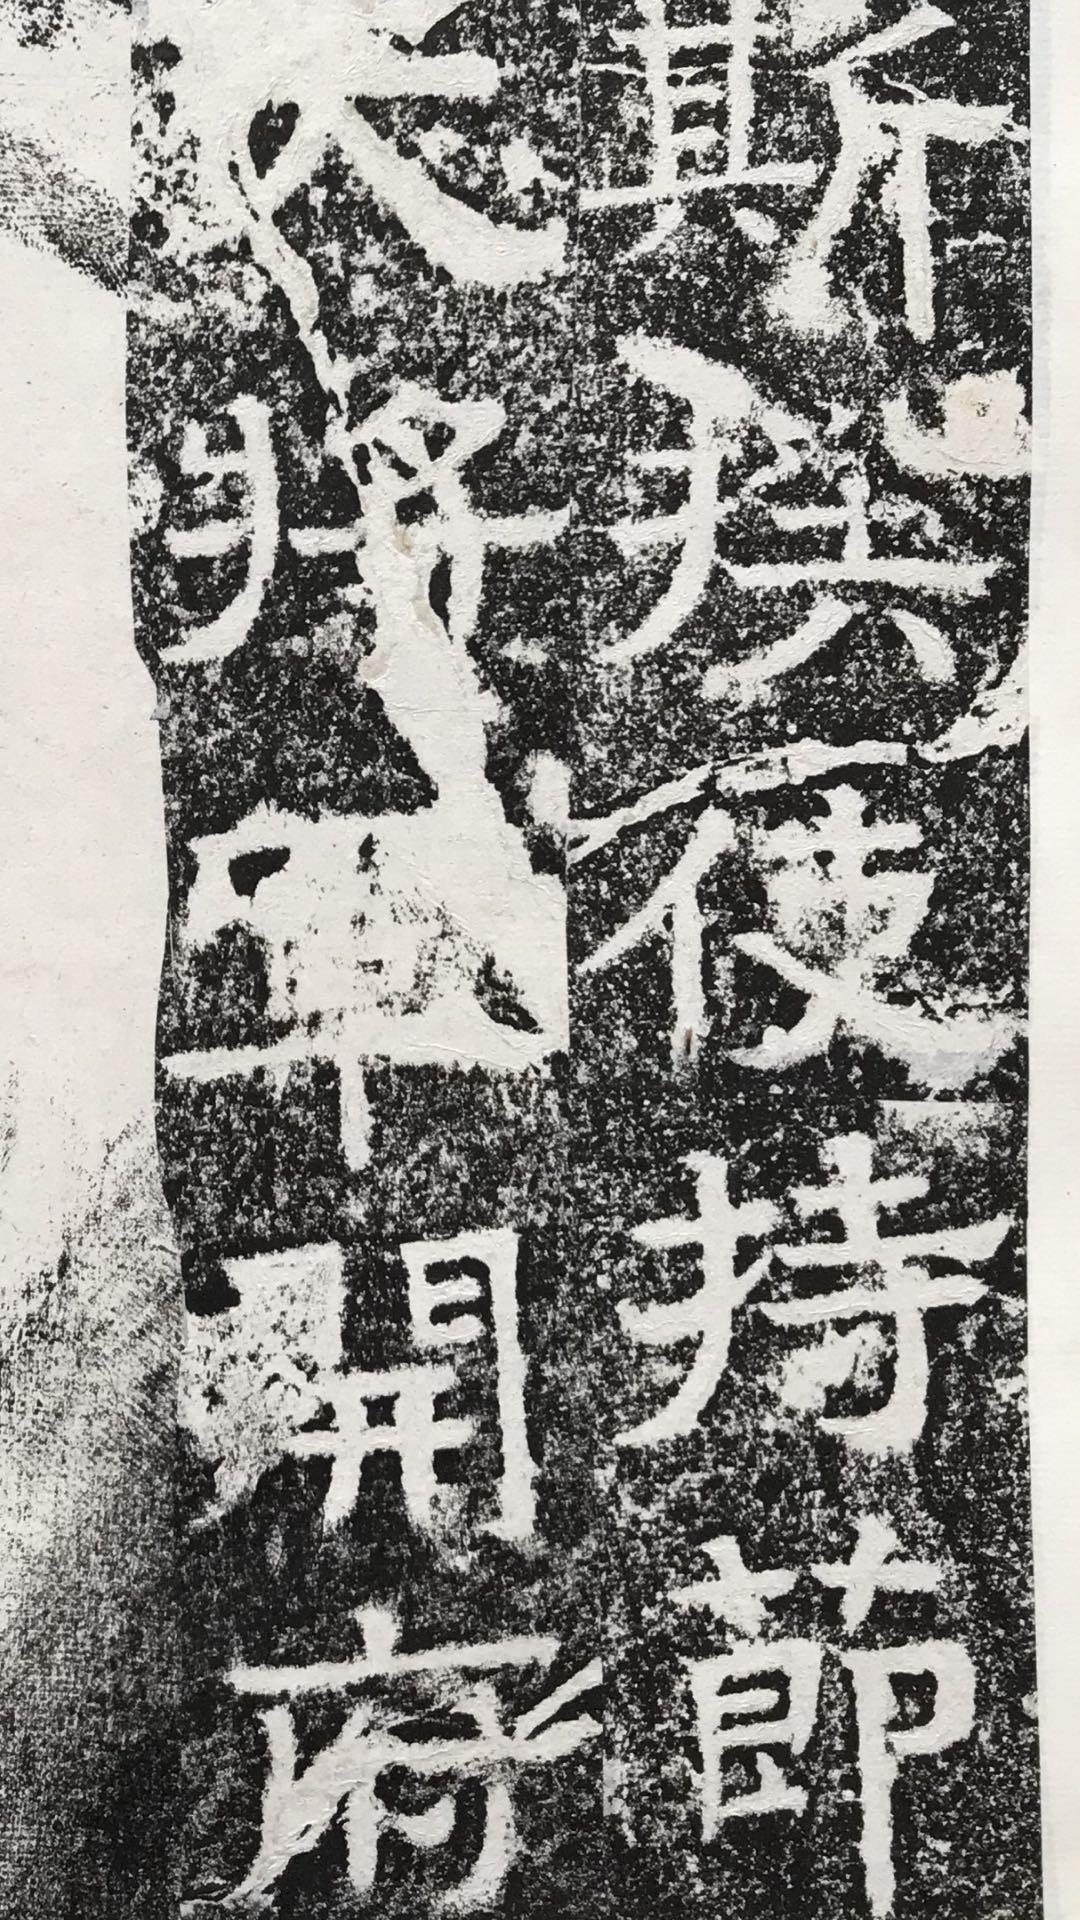 斯使持節
大將軍開府